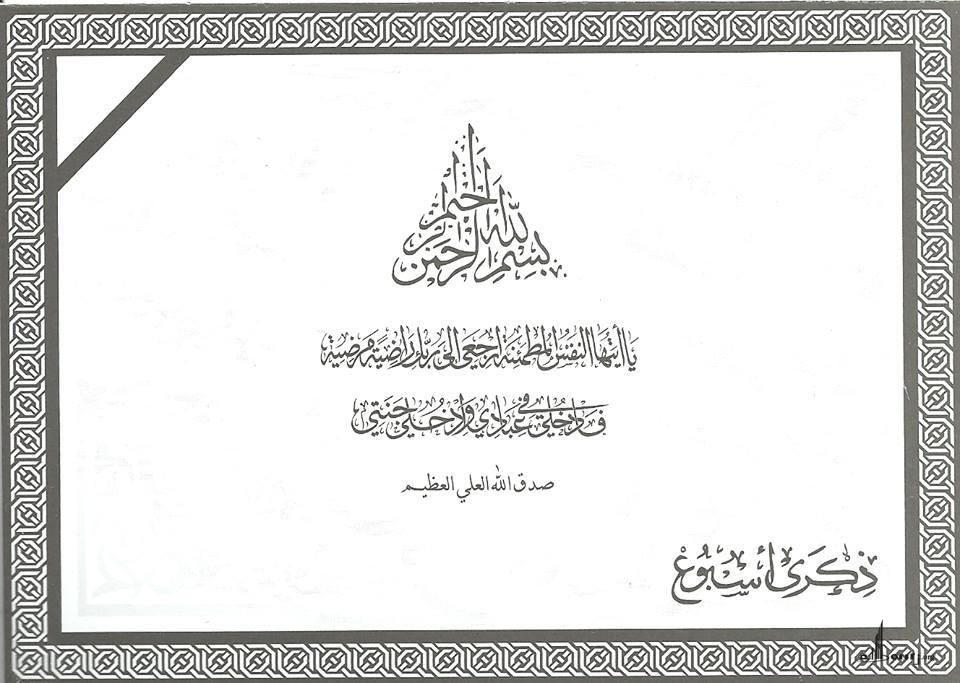 بسم الله الرحمن الرحيم
يا أيتها النفس المطمئنة ارجعي الى ربك راضية مرضية
فادخلي في عبادي وادخلي جنتي
صدق الله العلي العظيم
ذكرى أسبوع